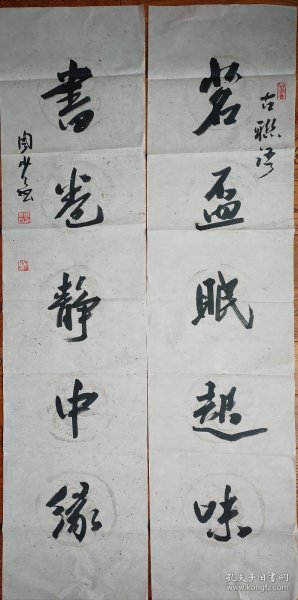 古聯語
茗盌眠起味
書卷靜中緣
孔夫子旧书网